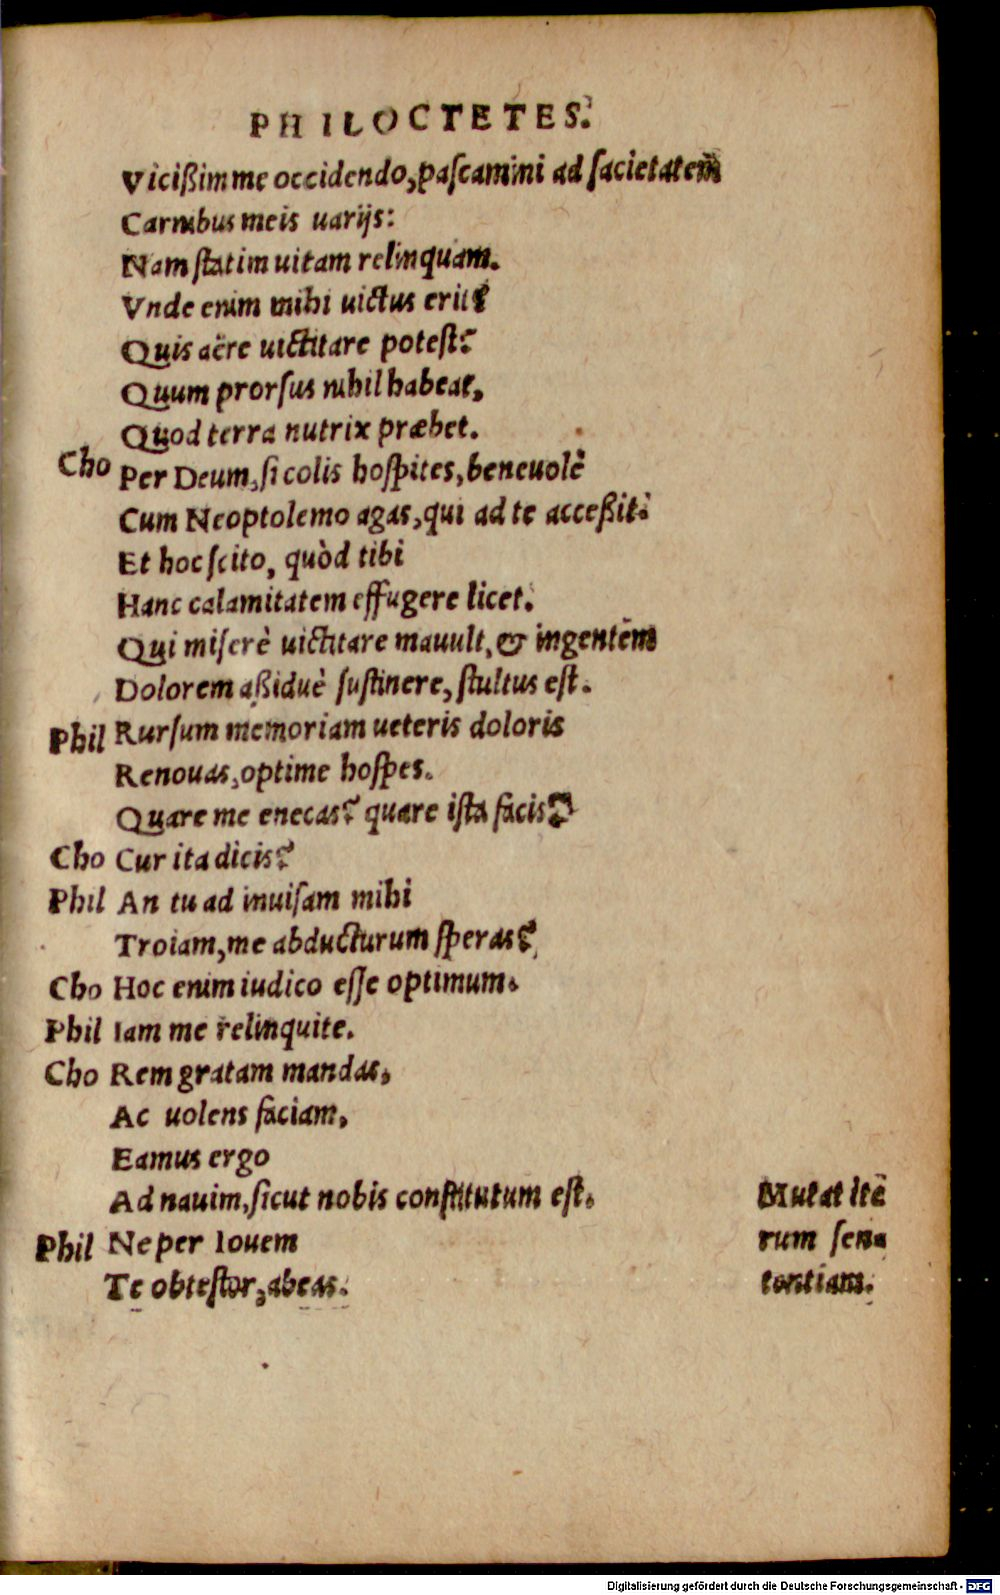 PHILOCTETES.
Vicißim me occidendo, pascamini ad sacietatem
Carnibus meis uarijs:
Nam statim uitam relinquam.
Vnde enim mihi uictus erit?
Quis aëre uictitare potest?
Quum prorsus nihil habeat,
Quod terra nutrix præbet.
Cho Per Deum, si colis hospites, beneuolè
Cum Neoptolemo agas, qui ad te acceßit:
Et hoc scito, quòd tibi
Hanc calamitatem effugere licet.
Qui miserè uictitare mauult, & ingentem
Dolorem aßiduè sustinere, stultus est.
Phil Rursum memoriam ueteris doloris
Renouas, optime hospes.
Quare me enecas? quare ista facis?
Cho Cur ita dicis?
Phil An tu ad inuisam mihi
Troiam, me abducturum speras?
Cho Hoc enim iudico esse optimum.
Phil Iam me relinquite.
Cho Rem gratam mandas,
Ac uolens faciam,
Eamus ergo
Ad nauim, sicut nobis constitutum est.
Phil Ne per Iouem
Te obtestor, abeas.
Mutat itē
rum sen-
tentiam.
Digitalisierung gefördert durch die Deutsche Forschungsgemeinschaft - DFG